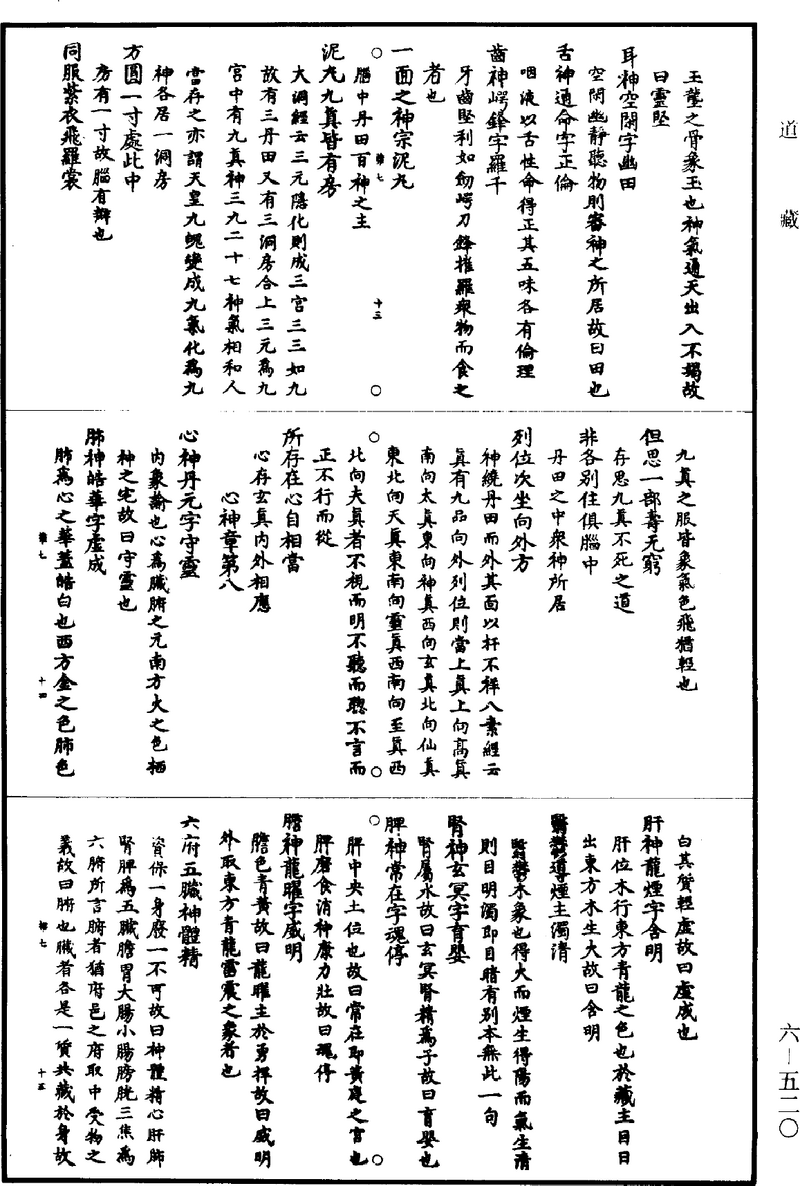 道藏
玉壟之骨象玉也神氣通天出入不竭故
曰靈堅
耳神空閑字幽田
空閑幽靜聽物則審神之所居故曰田也
舌神通命字正倫
咽液以舌性命得正其五味各有倫理
齒神崿鋒字羅千
牙齒堅利如劒崿刀鋒摧羅衆物而食之
者也
一面之神宗泥丸
腦中丹田百神之主
泥丸九真皆有房
大洞經云三元隱化則成三宮三三如九
故有三丹田又有三洞房合上三元爲九
宮中有九真神三九二十七神氣相和人
當存之亦謂天皇九魄變成九氣化爲九
神各居一洞房
方圓一寸處此中
房有一寸故腦有瓣也
同服紫衣飛羅裳
九真之服皆象氣色飛猶輕也
但思一部壽无窮
存思九真不死之道
非各別住俱腦中
丹田之中衆神所居
列位次坐向外方
神繞丹田而外其面以扞不祥八素經云
真有九品向外列位則當上真上向高真
南向太真東向神真西向玄真北向仙真
東北向天真東南向靈真西南向至真西
北向夫真者不視而明不聽而聰不言而
正不行而從
所存在心自相當
心存玄真內外相應
心神章第八
心神丹元字守靈
內象諭也心爲臟腑之元南方火之色栖
神之宅故曰守靈也
肺神皓華字虛成
肺爲心之華蓋皓白也西方金之色肺色
白其質輕虛故曰虛成也
肝神龍煙字含明
肝位木行東方青龍之色也於藏主目日
出東方木生火故曰含明
翳鬱導煙主濁清
翳鬱木象也得火而煙生得陽而氣生清
則目明濁即目暗有別本無此一句
腎神玄冥字育嬰
腎屬水故曰玄冥腎精爲子故曰育嬰也
脾神常在字魂停
脾中央土位也故曰常在即黄庭之宮也
脾磨食消神康力壯故曰魂停
膽神龍曜字威明
膽色青黄故曰龍曜主於勇捍故曰威明
外取東方青龍雷震之象者也
六府五臟神體精
資保一身廢一不可故曰神體精心肝肺
腎脾爲五臟膽胃大腸小腸膀胱三焦爲
六腑所言腑者猶府邑之府取中受物之
義故曰腑也臟者各是一質共藏於身故
六－五二〇